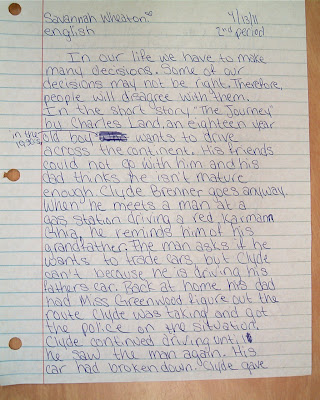 Savannah Wheaton 4/13/11
english 2nd period
In our life we have to make
many decosions. Some of our
decisions may not be right. Therefore,
people will disagree with them.
In the short story "The Journey"
by Charles Land, an eighteen year
in the 1930's
old boy wants to drive
across the continent. His friends
could not go with him and his
dad thinks he isn't mature
enough. Clyde Brenner goes anyway.
When he meets a man at a
gas station driving a red Karmann
Ghia, he reminds him of his
grandfather. The man asks if he
wants to trade cars, but Clyde
can't because he is driving his
fathers car. Back at home his dad
had Miss Greenwood figure out the
route Clyde was taking and got
the police on the situation.
Clyde continued driving until
he saw the man again. His
car had broken down. Clyde gave